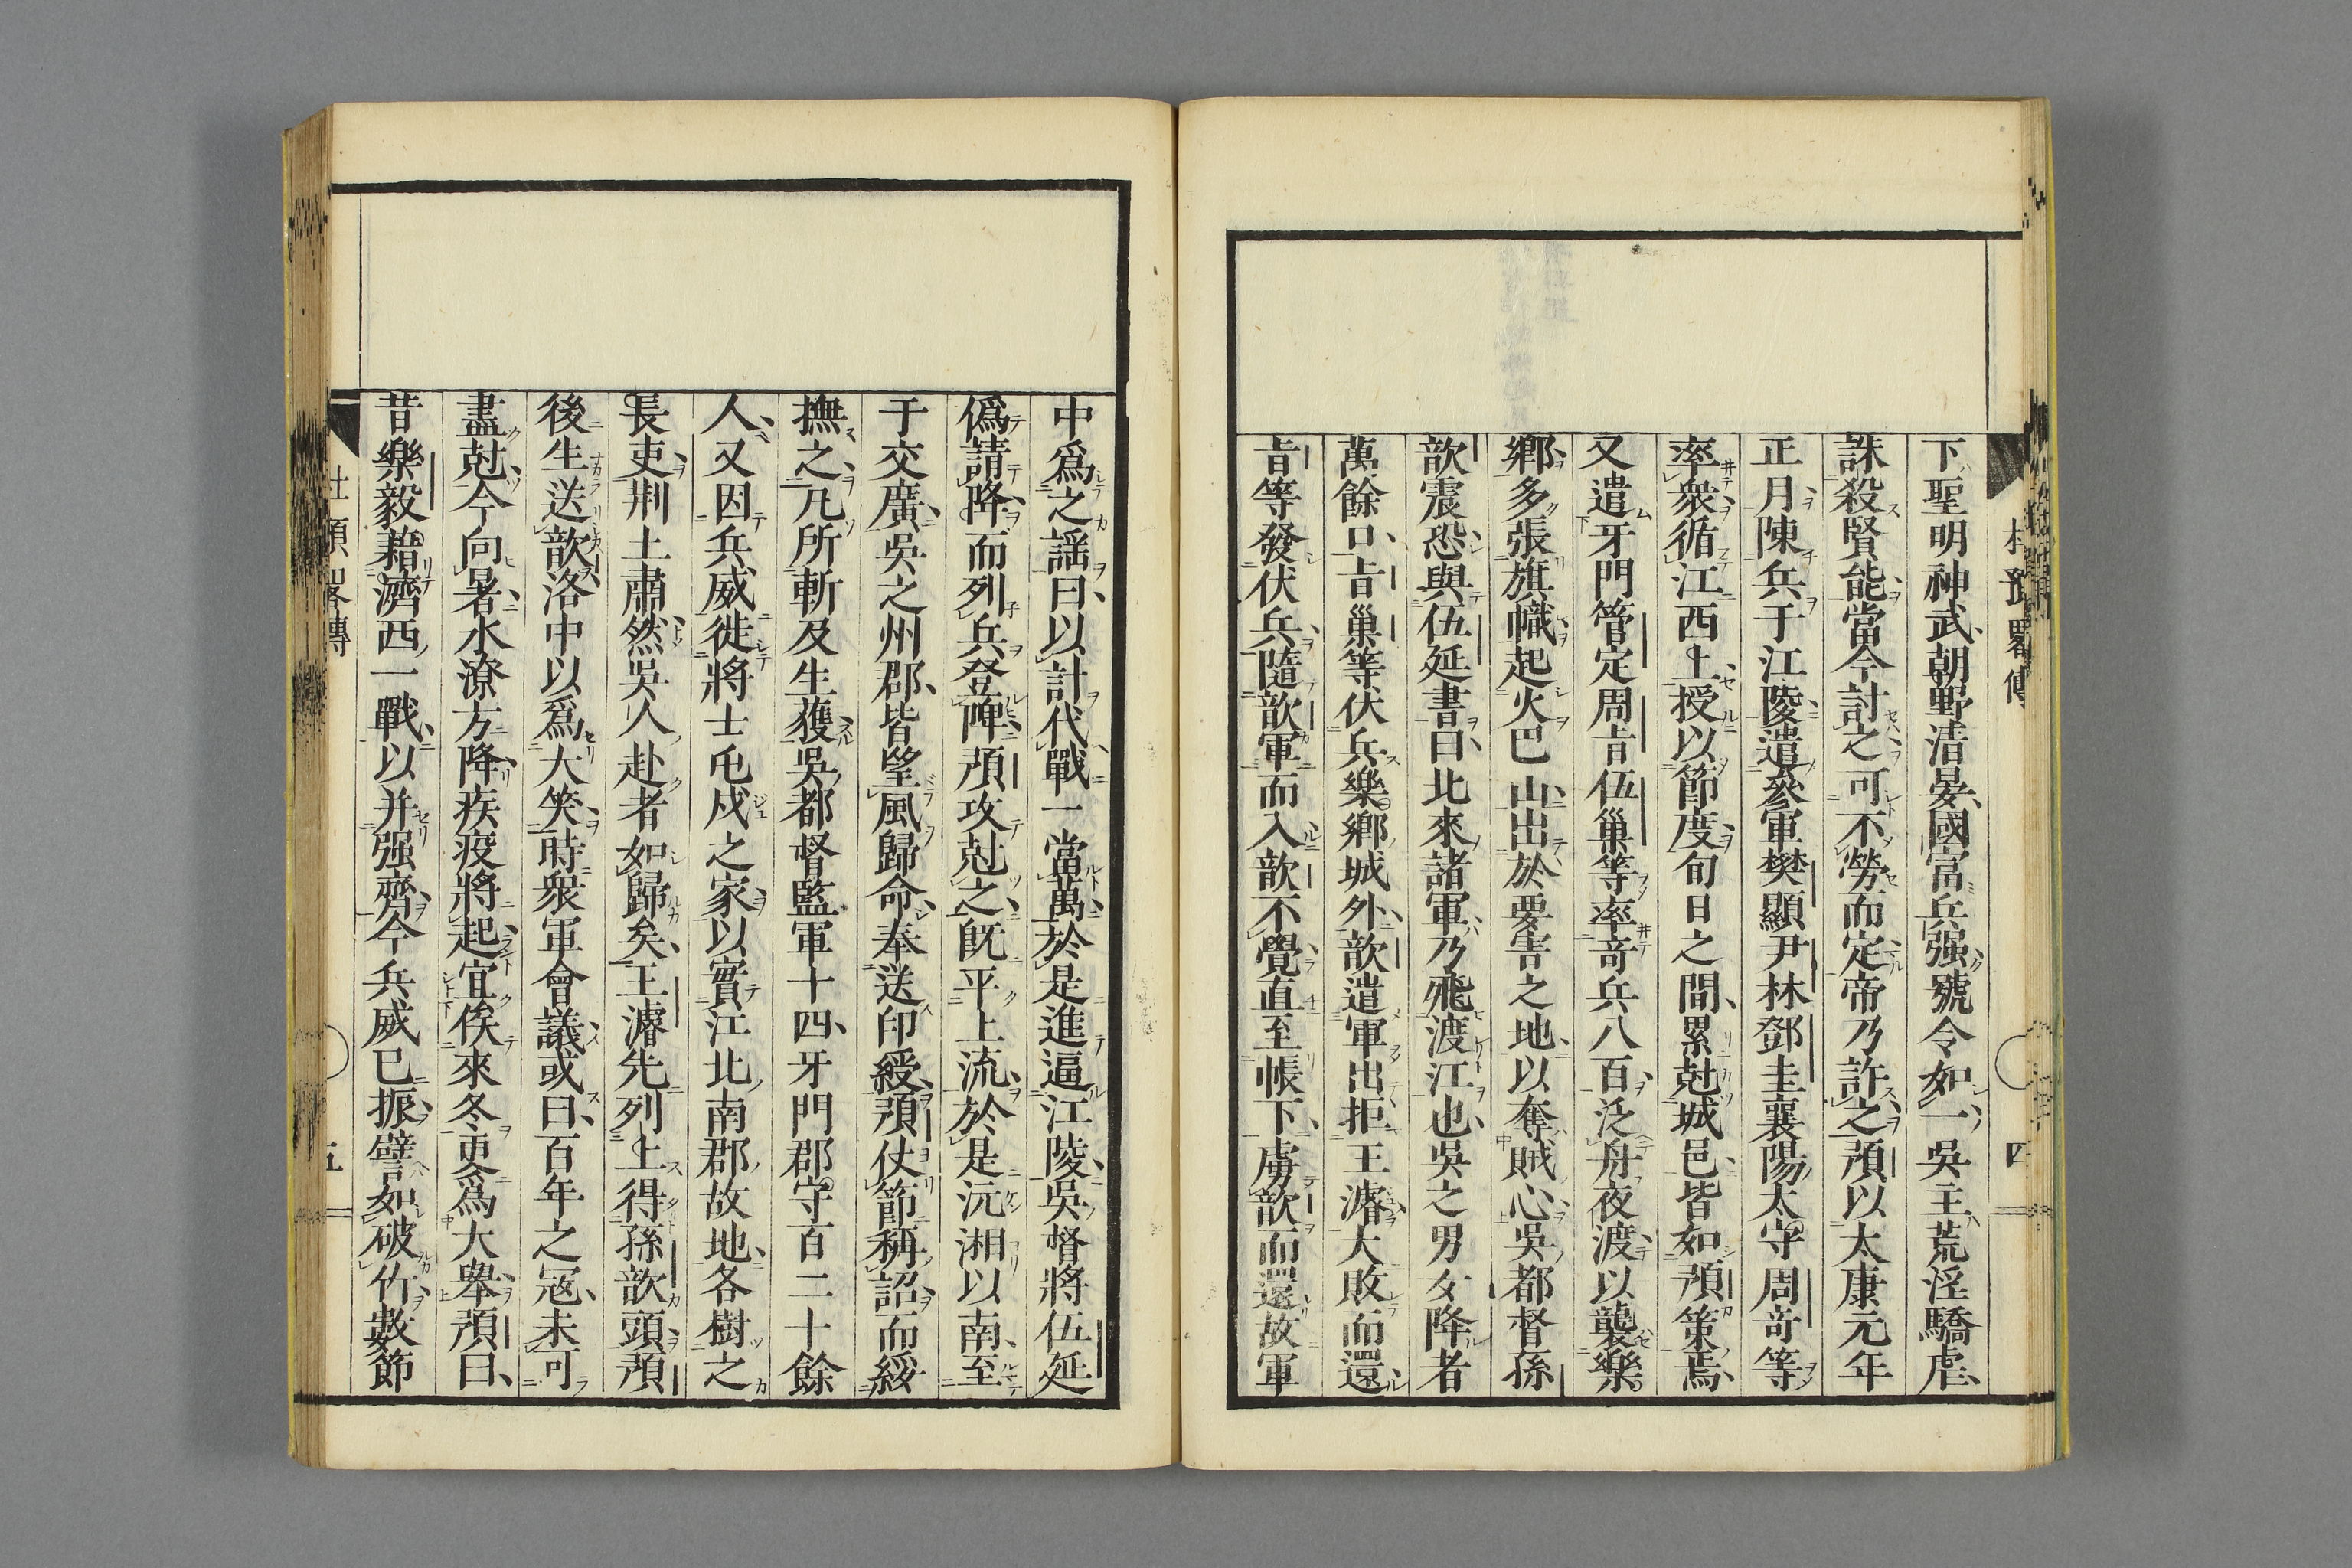 下聖明神武朝野清晏國富兵强號令如一吳主荒淫驕虐
誅殺賢能當今討之可不勞而定帝乃許之預以太康元年
正月陳兵于江陵遣參軍樊顯尹林鄧圭襄陽太守周竒等
率衆循江西上授以節度旬日之間累尅城邑皆如預策焉
又遣牙門管定周旨伍巢等率竒兵八百泛舟夜渡以襲樂
鄉多張旗幟起火巴山出於要害之地以奪賊心吳都督孫
歆震恐與伍延書曰北來諸軍乃飛渡江也吳之男女降者
萬餘口旨巢等伏兵樂鄉城外歆遣軍出拒王濬大敗而還
旨等發伏兵隨歆軍而入歆不覺直至帳下虜歆而還故軍
杜預畧傳
四
中爲之謡曰以計代戰一當萬於是進逼江陵吳督將伍延
僞請降而列兵登陴預攻尅之旣平上流於是沅湘以南至
于交廣吳之州郡皆望風歸命奉送印綬預仗節稱詔而綏
撫之凡所斬及生獲吳都督監軍十四牙門郡守百二十餘
人又因兵威徙將士屯戍之家以實江北南郡故地各樹之
長吏荆土肅然吳人赴者如歸矣王濬先列上得孫歆頭預
後生送歆洛中以爲大笑時衆軍會議或曰百年之寇未可
盡尅今向暑水潦方降疾疫將起宜俟來冬更爲大舉預曰
昔樂毅藉濟西一戰以并强齊今兵威已振譬如破竹數節
杜預畧傳
五